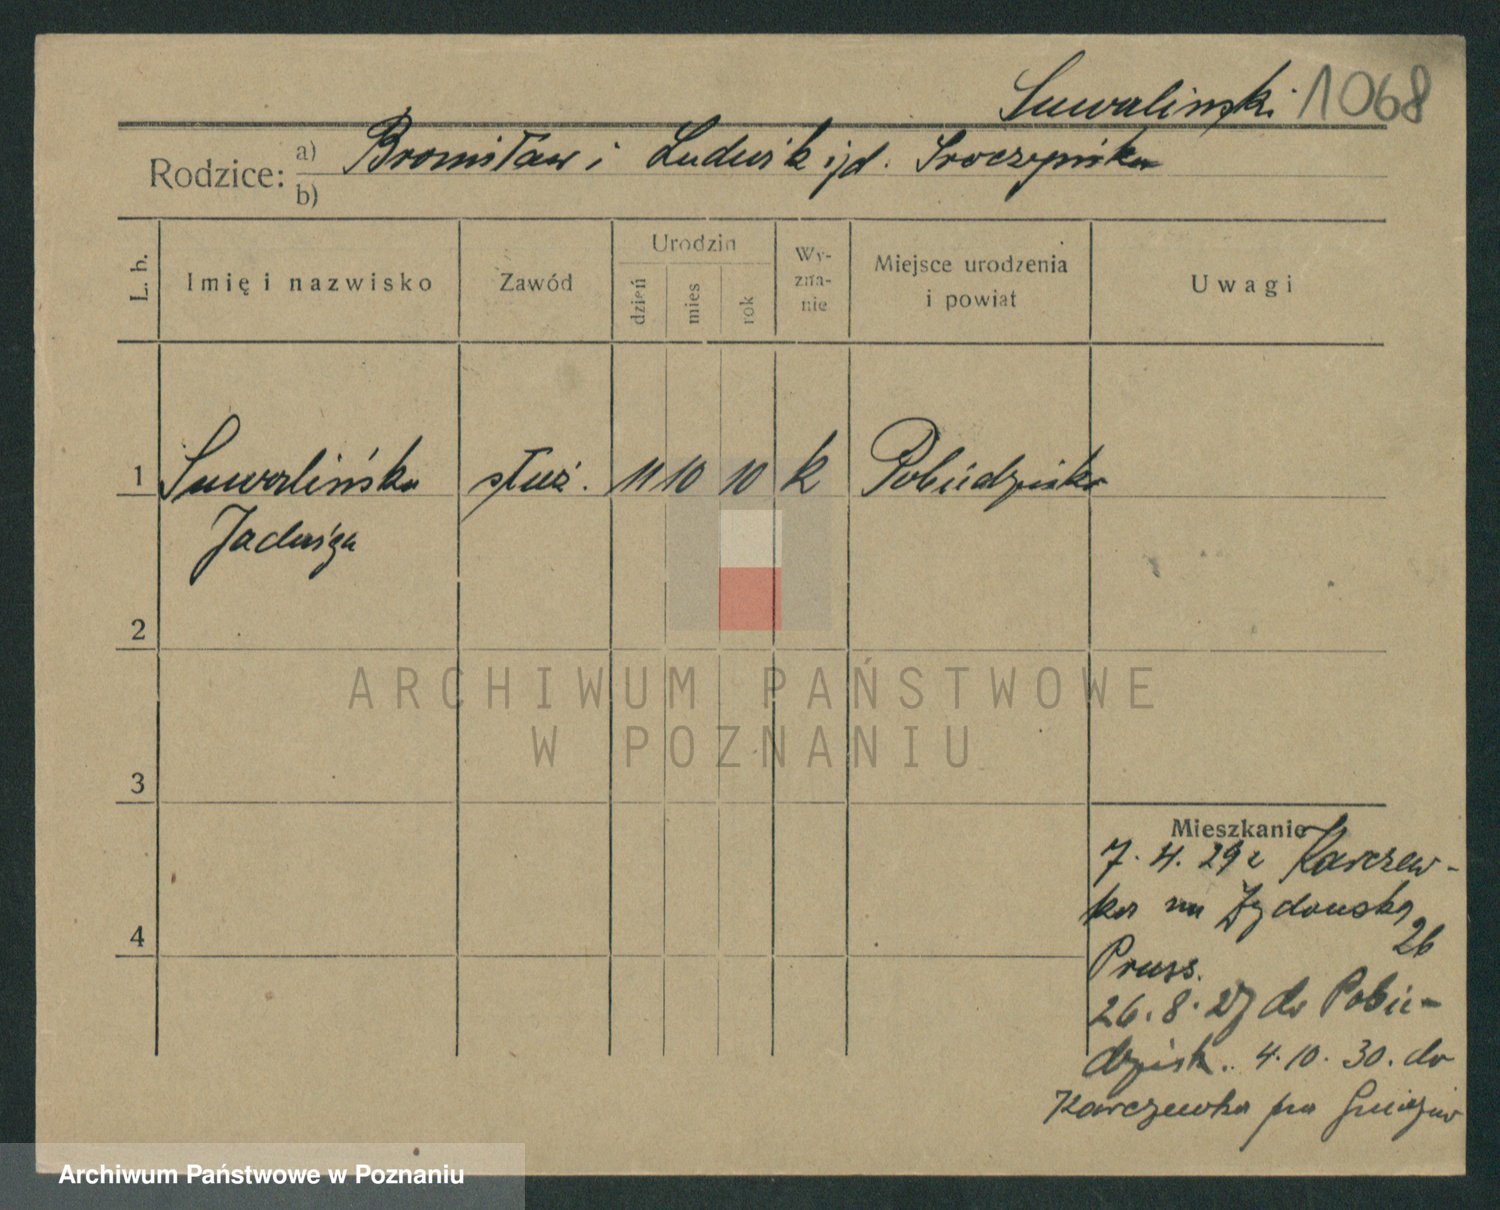 Suwalinski 1068
Rodzice: a) Bronisław i Ludwika
b)
L. b. Imię i nazwisko Zawód Urodzin dzień mies rok Wy-zna-nie Miejsce urodzenia i powiat Uwagi
1 Suwalińska służ. 11 10 10 k Pobiedziska
Jadwiga
2
3
4
Mieszkanie
7. 4. 29 z Karczew-
ka na Żydowska
26
Pruss.
26. 8. 29 do Pobie-
dzisk. 4. 10. 30. do
Karczewka pw Gniezno
ARCHIWUM PAŃSTWOWE
W POZNANIU
Archiwum Państwowe w Poznaniu